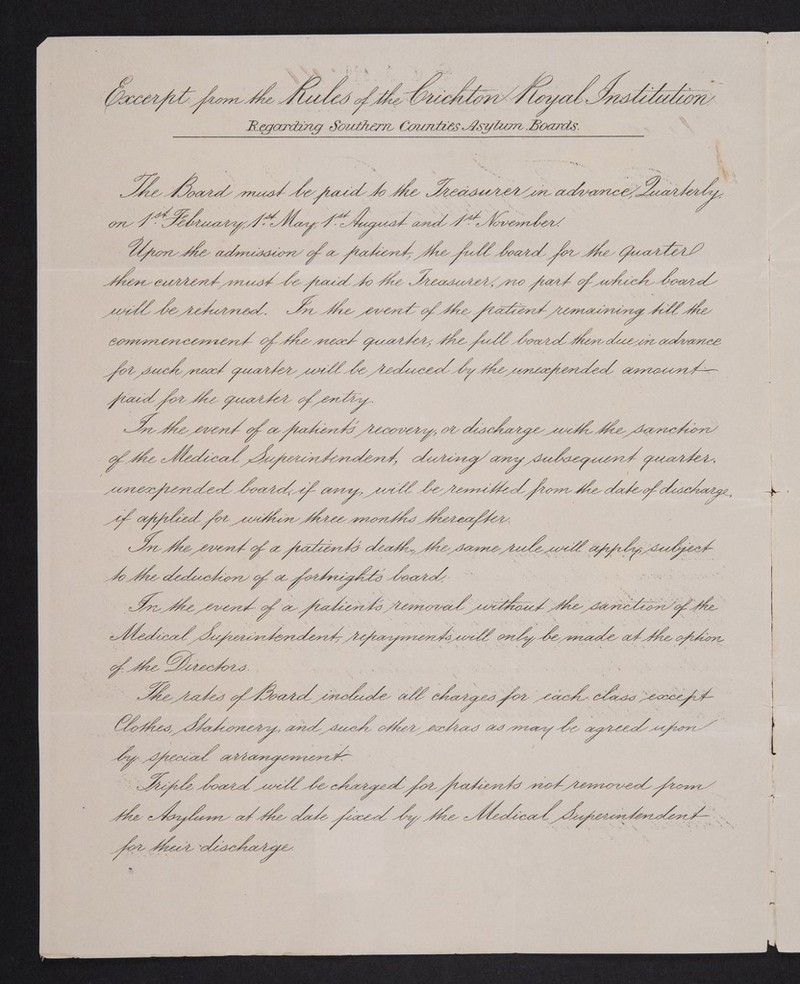 Excerpt from the Rules of the Crichton Royal Institution
Regarding Southern Counties Asylum Boards.
The Board must be paid to the Treasurer in advance, Quarterly,
on 1st February, 1st May, 1st August and 1st November.
Upon the admission of a patient, the full board for the Quarter
then current, must be paid to the Treasurer, no part of which board
will be returned. In the event of the patient remaining till the
commencement of the next quarter, the full board then due in advance
for such next quarter will be reduced by the unexpended amount
paid for the quarter of entry.
In the event of a patient's recovery, or discharge with the sanction
of the Medical Superintendent, during any subsequent quarter,
unexpended board, if any, will be remitted from the date of discharge,
if applied for within three months thereafter.
In the event of a patient's death, the same rule will apply, subject
to the deduction of a fortnight's board.
In the event of a patient's removal without the sanction of the
Medical Superintendent, repayments will only be made at the option
of the Directors.
The rates of Board include all charges for each class except
Clothes, Stationery, and such other extras as may be agreed upon
by special arrangement.
Triple board will be charged for patients not removed from
the Asylum at the date fixed by the Medical Superintendent
for their discharge